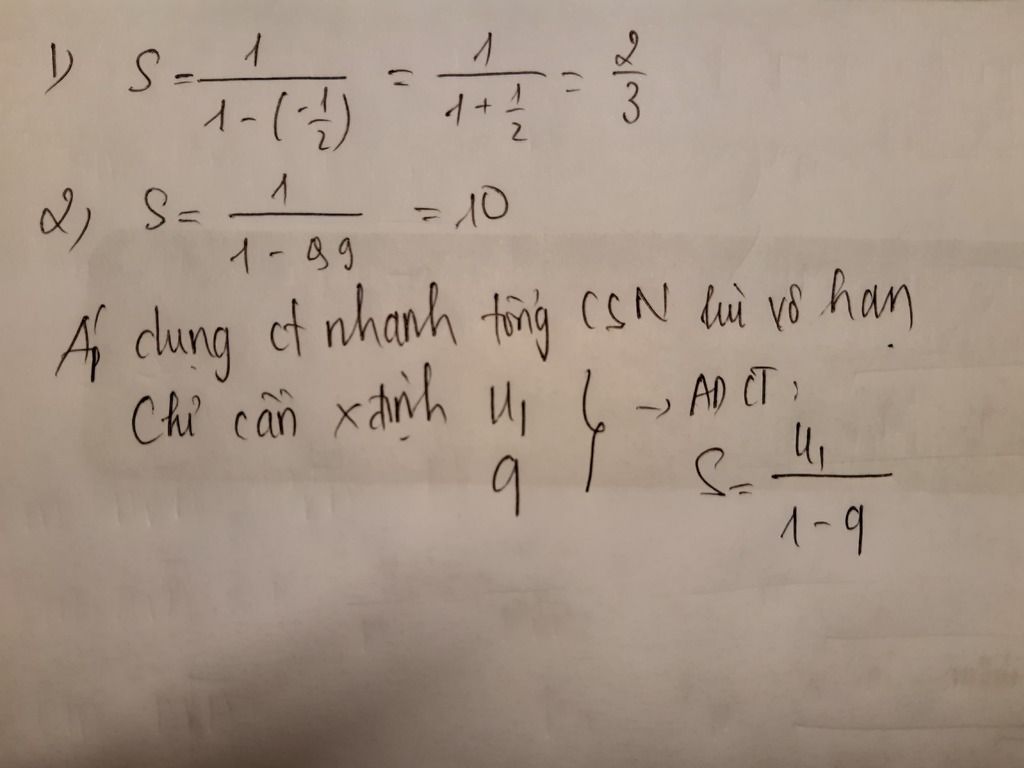 1) S = 1 / (1 - (-1/2)) = 1 / (1 + 1/2) = 2/3
2) S = 1 / (1 - 0,9) = 10
Áp dụng ct nhanh tổng CSN lùi vô hạn
Chỉ cần xđịnh u₁ } → ADCT:
q S = u₁ / (1 - q)